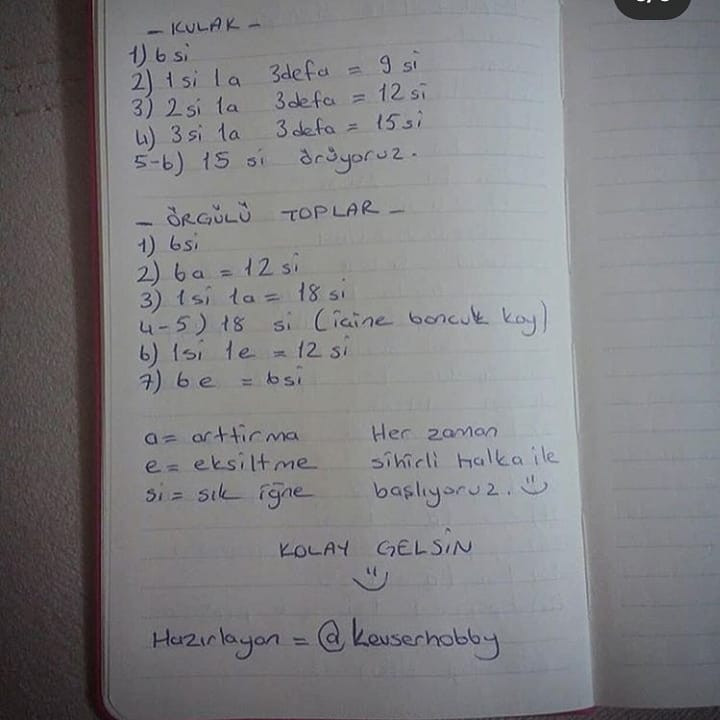 - KULAK -
1) 6 si
2) 1 si 1a 3defa = 9 si
3) 2 si 1a 3defa = 12 si
4) 3 si 1a 3defa = 15 si
5-6) 15 si örüyoruz.
- ÖRGÜLÜ TOPLAR -
1) 6si
2) 6a = 12 si
3) 1si 1a = 18 si
4-5) 18 si (içine boncuk koy)
6) 1si 1e = 12 si
7) 6e = 6si
a = arttirma Her zaman
e = eksiltme sihirli halka ile
si = sık iğne başlıyoruz.
KOLAY GELSİN
Hazırlayan = @kevserhobby